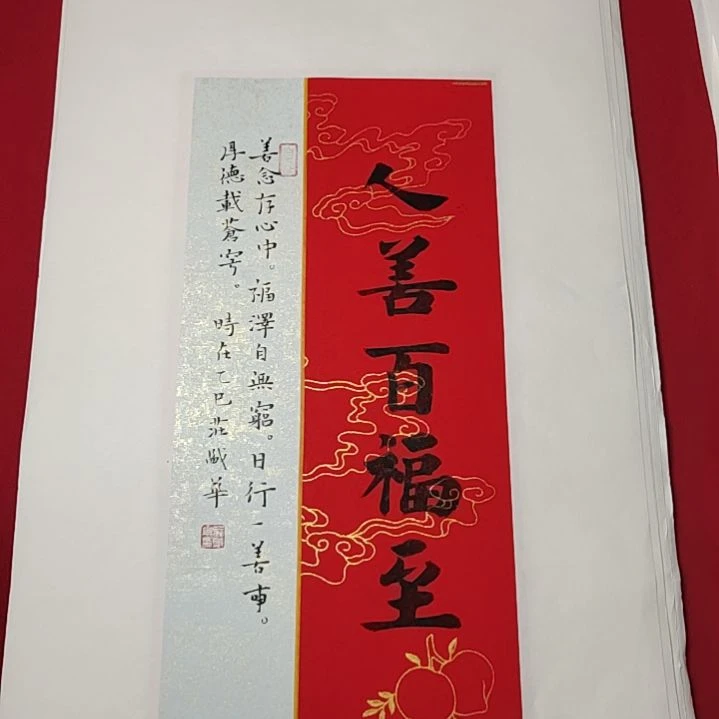 人善百福至
善念存心中。福澤自無窮。日行一善事。
厚德載蒼穹。時在乙巳莊嵗華